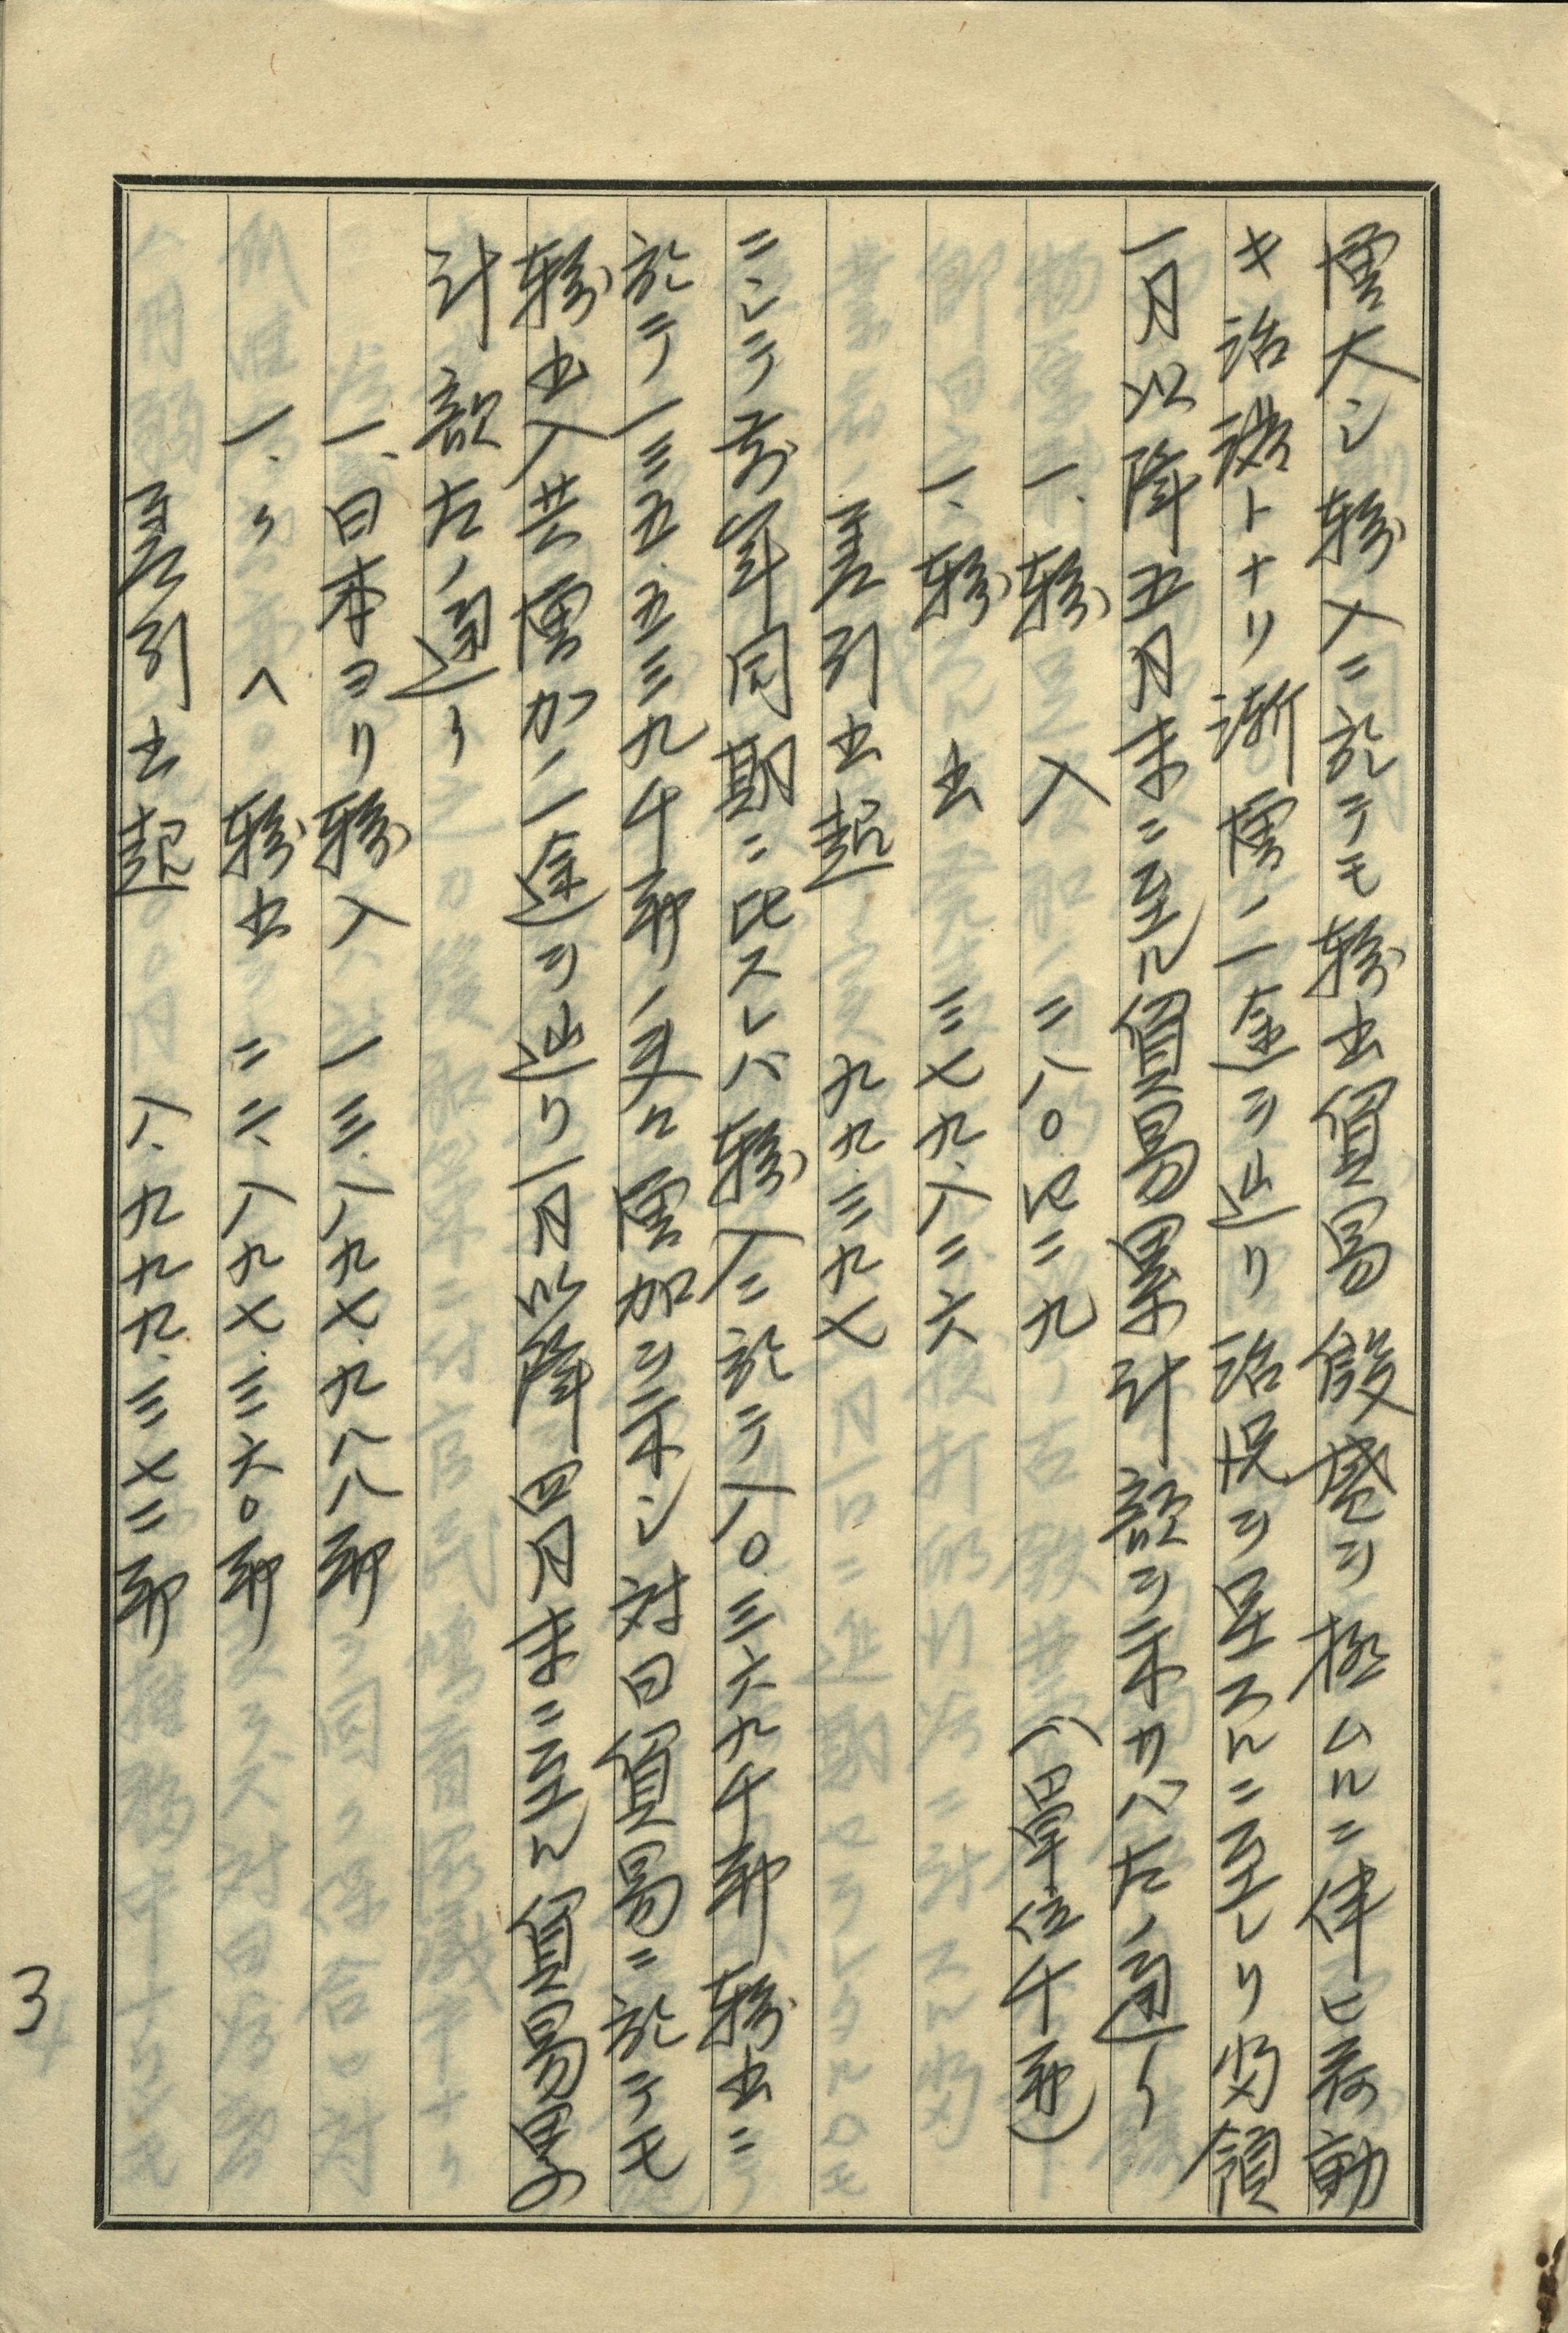 増大シ輸入ニ於テモ輸出貿易殷盛ヲ極ムルニ伴ヒ荷動
キ活溌トナリ漸増ノ一途ヲ辿リ活況ヲ呈スルニ至レリ当領
一月以降五月末ニ至ル貿易累計額ヲ示サバ左ノ通リ
一、輸入 二八〇四二九 (単位千歩)
一、輸出 三七九、八二六
差引出超 九九、三九七
ニシテ前年同期ニ比スレバ輸入ニ於テ八〇、三六九千歩輸出ニ
於テ一三五、五三九千歩ノ夫々増加ヲ示シ対日貿易ニ於テモ
輸出入共増加ノ一途ヲ辿リ一月以降四月末ニ至ル貿易累
計額左ノ通リ
一、日本ヨリ輸入 一三、八九七、九八八歩
一、〃 ヘ 輸出 二二、八九七、三六〇歩
差引出超 八、九九九、三七二歩
3